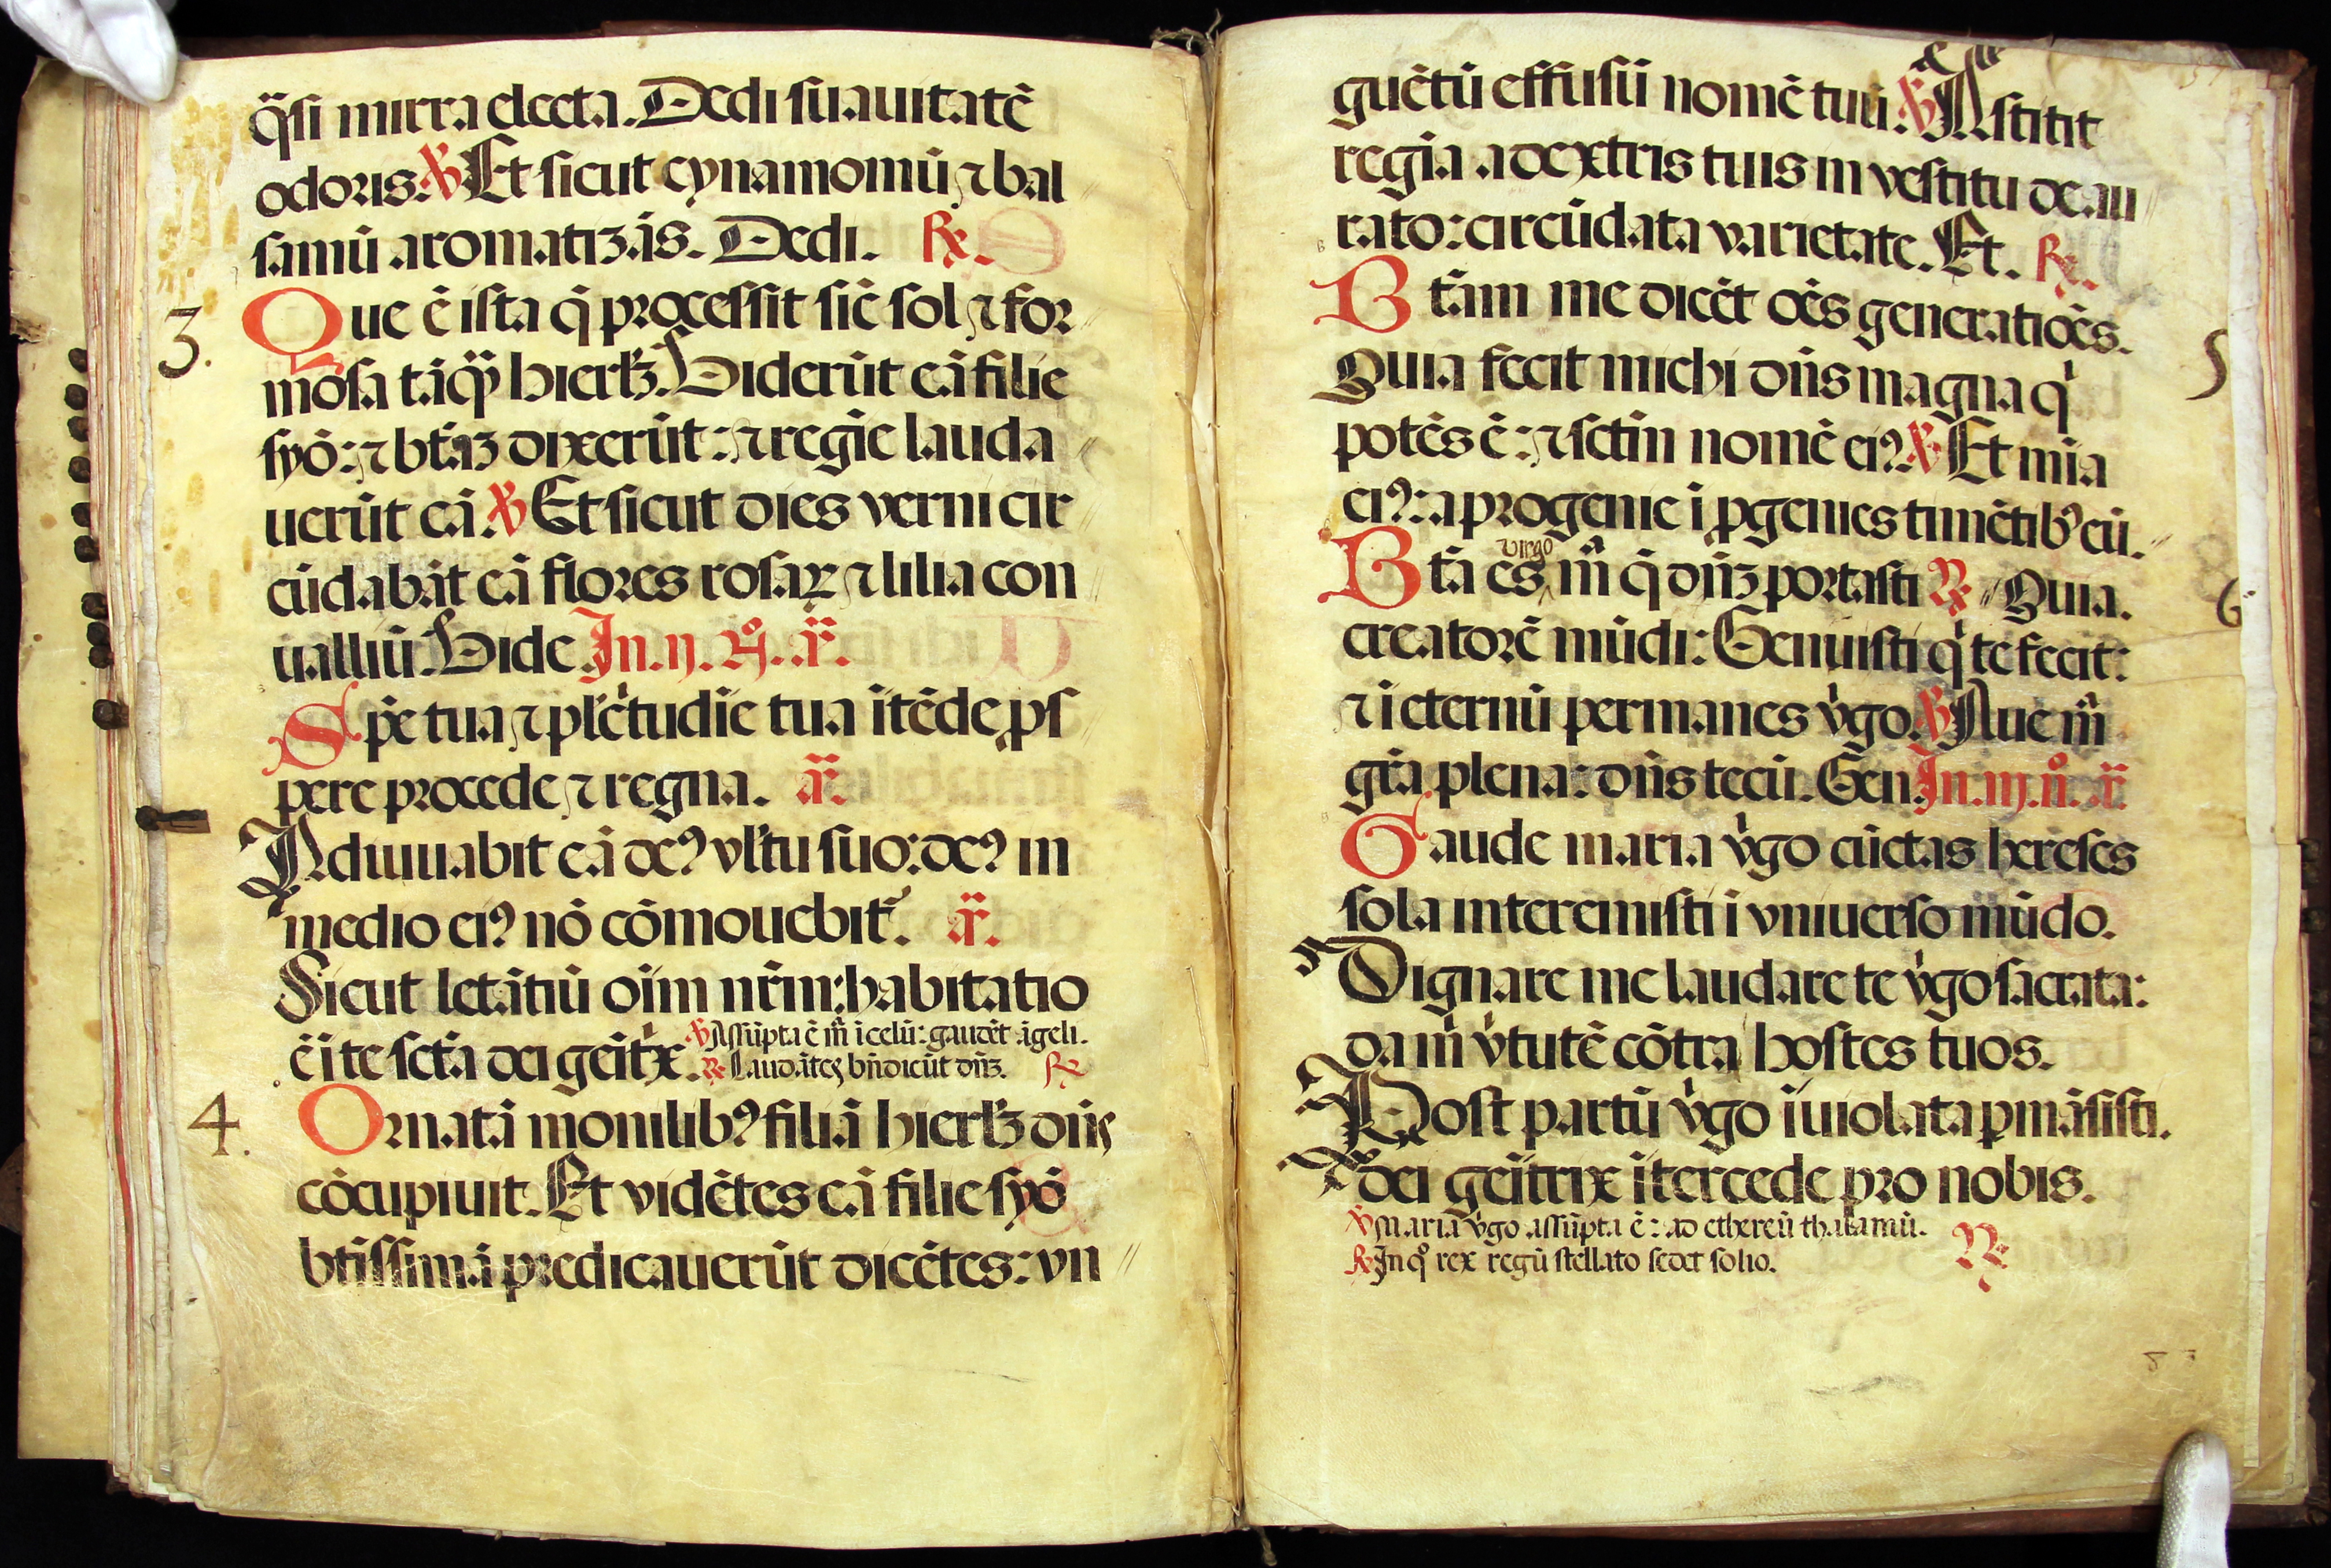 q̃si mirra electa. Dedi suauitatē
odoris. ℣ Et sicut cynamomū ⁊ bal
samū aromatizās. Dedi. ℞.
3. Que ē ista q̄ processit sic̄ sol ⁊ for
mosa tāq̄ hierłꝫ. Uiderūt eā filie
syō: ⁊ bt̄aꝫ dixerūt: ⁊ regīe lauda
uerūt eā. ℣ Et sicut dies verni cir
cūdabāt eā flores rosaꝝ ⁊ lilia con
ualliū. Uide. In. ij. n̊. ā.
Spē tua ⁊ pl̄c̄tudīe tua ītēde ꝓs
pere procede ⁊ regna. ā.
Adiuuabit eā deꝰ vl̄tu suo: deꝰ in
medio eiꝰ nō cōmouebit᷑. ā.
Sicut letātiū oīm nr̄m: habitatio
ē ī te sct̄a dei geīt̄x. ℣ Assūpta ē m̄ īcelū: gaudēt āgeli.
℞ Laudātes bn̄dicūt dn̄ꝫ. ℞
4. Ornatā monilibꝰ filiā hierłꝫ dn̄s
cōcupiuit. Et vidētes eā filie syō
bt̄issimā predicauerūt dicētes: vn
guētū effusū nomē tuū. ℣ Astitit
regīa a dextris tuis in vestitu deau
rato: circūdata varietate. Et. ℞.
Bt̄am me dicēt oēs generatiōēs. 5
Quia fecit michi dn̄s magna qͥ
potēs ē: ⁊ sct̄m nomē eiꝰ ℣ Et mīa
eiꝰ: a progenie ī ꝓgenies timētibꝰ eū.
virgo
Bt̄a es m̄ q̄ dn̄ꝫ portasti ℞ Quia. 6
creatorē mūdi: Genuisti qͥ te fecit:
⁊ ī eternū permanes vͥgo. ℣ Aue m̄
gr̄a plena: dn̄s tecū. Gen. In. iij. n̊. ā
Gaude maria vͥgo cūctas hereses
sola interemisti ī vniuerso mūdo.
Dignare me laudare te vͥgo sacrata:
da m̄ vͥtutē cōtra hostes tuos.
Post partū vͥgo īuiolata ꝑmāsisti.
dei geītrix ītercede pro nobis.
℣ Maria vͥgo assūpta ē: ad ethereū thalamū.
℞ In qͦ rex regū stellato sedet solio. ℞